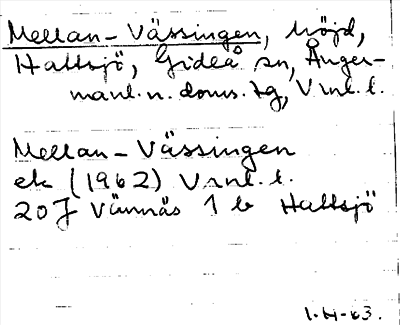 Mellan-Vässingen, höjd,
Hallsjö, Gideå sn, Ånger-
manl. n. doms. tg, Vnl. l.
Mellan-Vässingen
ek (1962) Vnl. l.
20 J Vännäs 1 b Hallsjö